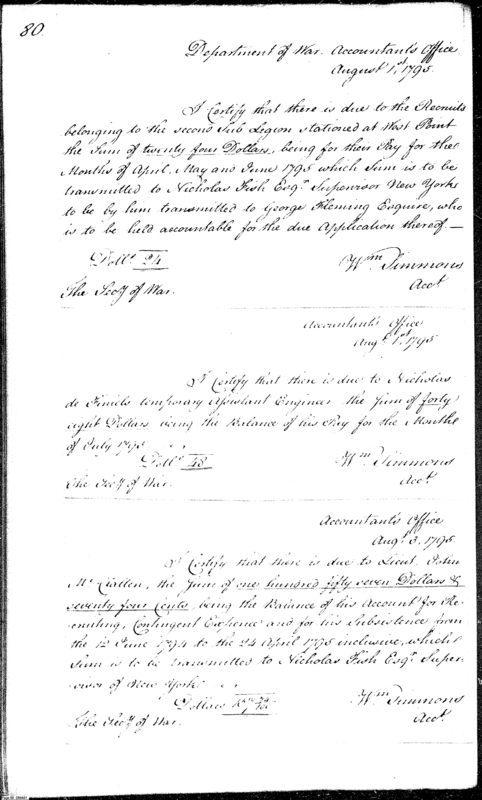 80.
Department of War. Accountant's Office
August 1st, 1795.
I Certify that there is due to the Recruits
belonging to the second Sub Legion stationed at West Point
the Sum of twenty four Dollars, being for their Pay for the
Months of April, May and June 1795 which Sum is to be
transmitted to Nicholas Fish Esqr. Supervisor New York
to be by him transmitted to George Fleming Esquire, who
is to be held accountable for the due Application thereof.—
Dolls. 24
Wm Simmons
Acct.
The Secy of War.
Accountant's Office
Augt. 1st, 1795
I Certify that there is due to Nicholas
de Finiels temporary Assistant Engineer the Sum of forty
eight Dollars being the Balance of his Pay for the Month
of July 1795
Dolls. 48
Wm Simmons
Acct.
The Secy of War.
Accountant's Office
Augt. 3. 1795.
I Certify that there is due to Lieut. John
Mc Clallen, the Sum of one hundred fifty seven Dollars &
seventy four Cents, being the Balance of his Account for Re-
cruiting, Contingent Expence and for his Subsistence from
the 12 June 1794 to the 24 April 1795 inclusive, which
Sum is to be transmitted to Nicholas Fish Esqr. Super-
visor of New York
Dollars
Wm Simmons
Acct.
The Secy of War.